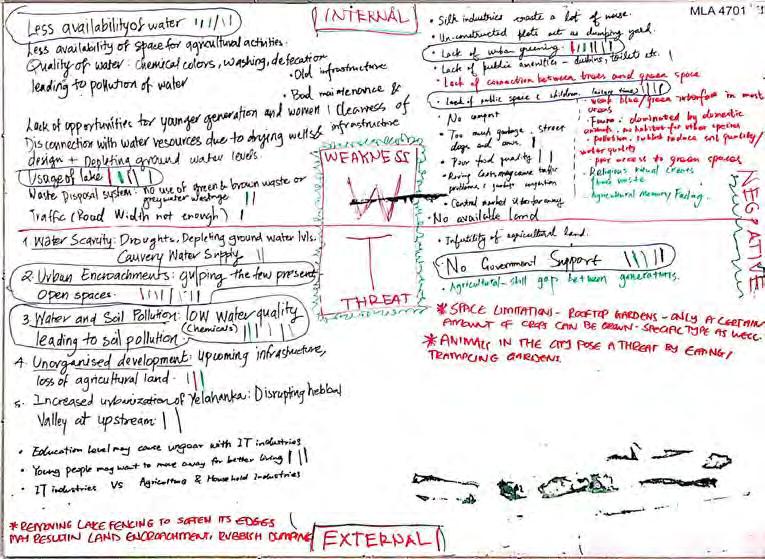 INTERNAL
MLA 4701
Less availability of water
Less availability of space for agricultural activities.
Quality of water: chemical colors, washing, defecation
leading to pollution of water
• Old infrastructure
• Bad maintenance &
Cleaness of
infrastructure
Lack of opportunities for younger generation and women
Disconnection with water resources due to drying wells &
design + Depleting ground water levels.
Usage of lake
Waste Disposal system: no use of green & brown waste or
greywater wastage
Traffic (Road Width not enough)
• Silk industries create a lot of noise.
• Un-constructed plots act as dumping yard.
• Lack of urban greening
• Lack of public amenities - dustbins, toilets etc.
• Lack of connection between trees and green space
• Lack of public space (children, leisure time)
• No
• Too much garbage, street
dogs and cows.
• Poor food quality
problems & garbage
• Central market
• No available land
• weak blue/green interface in most
areas
• Fauna: dominated by domestic
animals, no habitat for other species
• Pollution: reduce soil quality/
water quality
• poor access to green spaces
• Religious ritual creates
waste
• Agricultural Memory Fading.
WEAKNESS
W
NEGATIVE
T
THREAT
1. Water Scarcity: Droughts, Depleting ground water lvls.
Cauvery Water Supply
2. Urban Encroachments: gulping the few present
Open spaces.
3. Water and Soil Pollution: low water quality
leading to soil pollution (Chemicals)
4. Unorganised development: Upcoming infrastructure,
loss of agricultural land.
5. Increased urbanization of Yelahanka: Disrupting hebbal
Valley at upstream
• Education level may cause unfair with IT industries
• Young people may want to move away for better living
• IT industries Vs Agriculture & Household Industries
* REMOVING LAKE FENCING TO SOFTEN ITS EDGES
MAY RESULT IN LAND ENCROACHMENT, RUBBISH DUMPING
• Infertility of agricultural land.
• No Government Support
• Agricultural-skill gap between generations.
* SPACE LIMITATION - ROOFTOP GARDENS - ONLY A CERTAIN
AMOUNT OF CROPS CAN BE GROWN - SPECIAL TYPE AS WELL.
* ANIMALS IN THE CITY POSE A THREAT BY EATING/
TRAMPLING GARDENS.
EXTERNAL